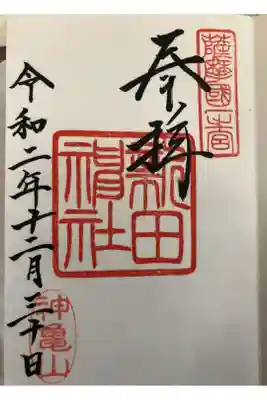 薩摩國一宮
奉拝
新田
神社
令和二年十二月三十日
神亀山